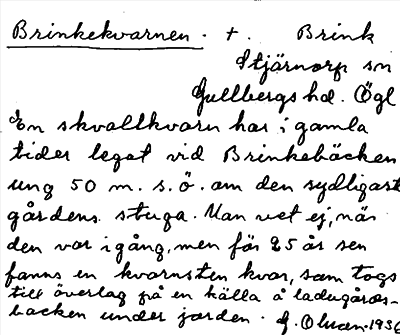 Brinkekvarnen. +. Brink
Stjärnorp sn
Gullbergs hd. Ögl
En skvaltkvarn har i gamla
tider legat vid Brinkebäcken
ung 50 m. s.ö. om den sydligast
gårdens stuga. Man vet ej, när
den var igång, men för 25 år sen
fanns en kvarnsten kvar, som togs
till överlag på en källa å ladugårds-
backen under jorden. G. Olson. 1936